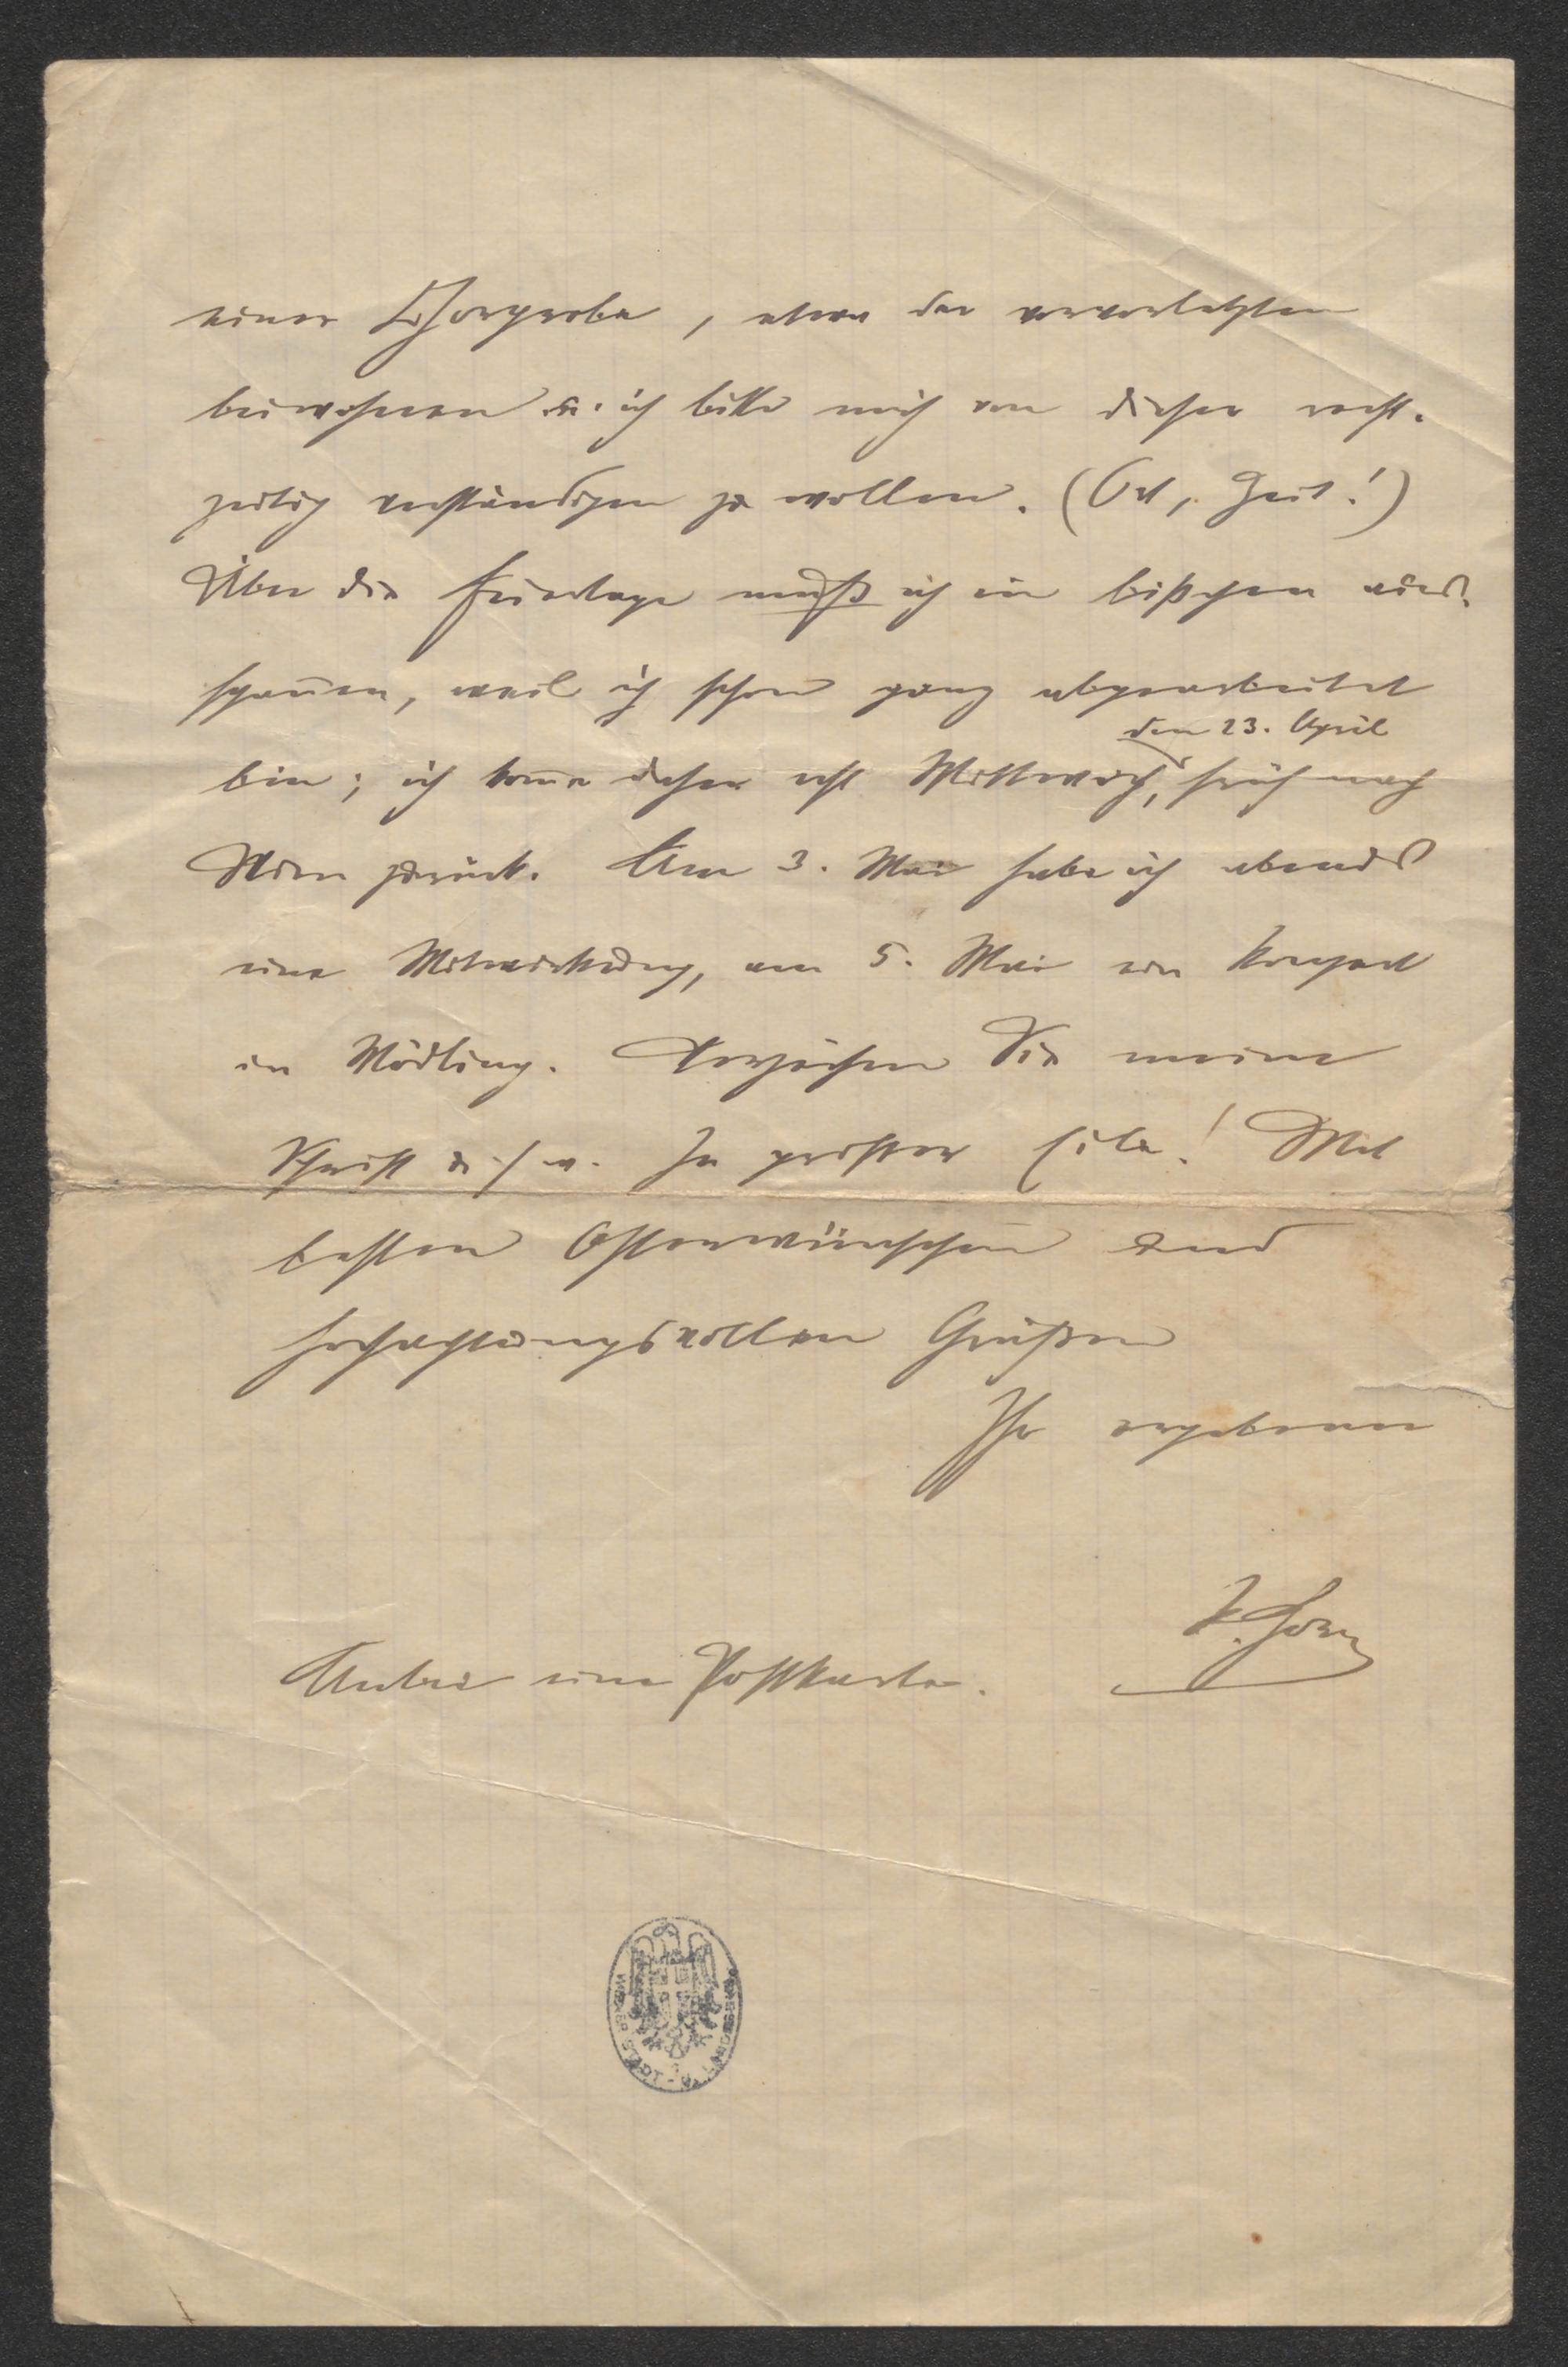 einer Chorprobe, etwa der vorvorletzten
beiwohnen u. ich bitte mich von dieser recht-
zeitig verständigen zu wollen. (Ort, Zeit!)
Über die Feiertage muß ich ein bißchen aus-
spannen, weil ich schon ganz abgearbeitet
den 23. April
bin; ich kome daher erst Mittwoch, früh nach
Wien zurück. Am 3. Mai habe ich abends
eine Mitwirkung, am 5. Mai ein Konzert
in Mödling. Verzeihen Sie meine
Schrift u. s. w. In großer Eile! Mit
besten Osterwünschen und
hochachtungsvollen Grüßen
Ihr ergebener
Anbei eine Postkarte.
WIENER STADT-